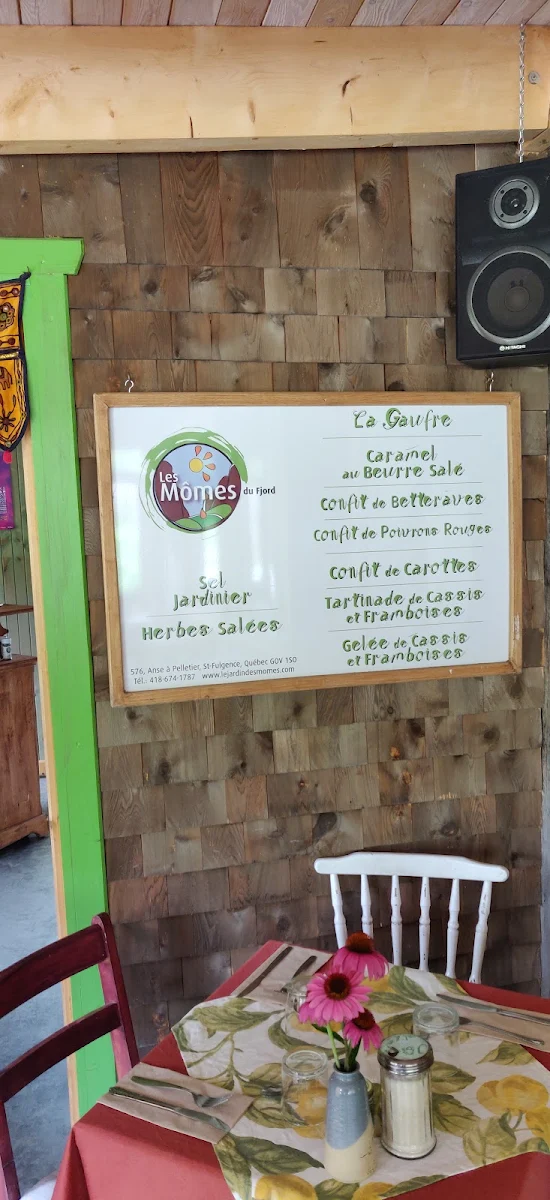 Les
Mômes du Fjord
Sel
Jardinier
Herbes Salées
576, Anse à Pelletier, St-Fulgence, Québec G0V 1S0
Tél.: 418-674-1787 www.lejardindesmomes.com
La Gaufre
Caramel
au Beurre Salé
Confit de Betteraves
Confit de Poivrons Rouges
Confit de Carottes
Tartinade de Cassis
et Framboises
Gelée de Cassis
et Framboises